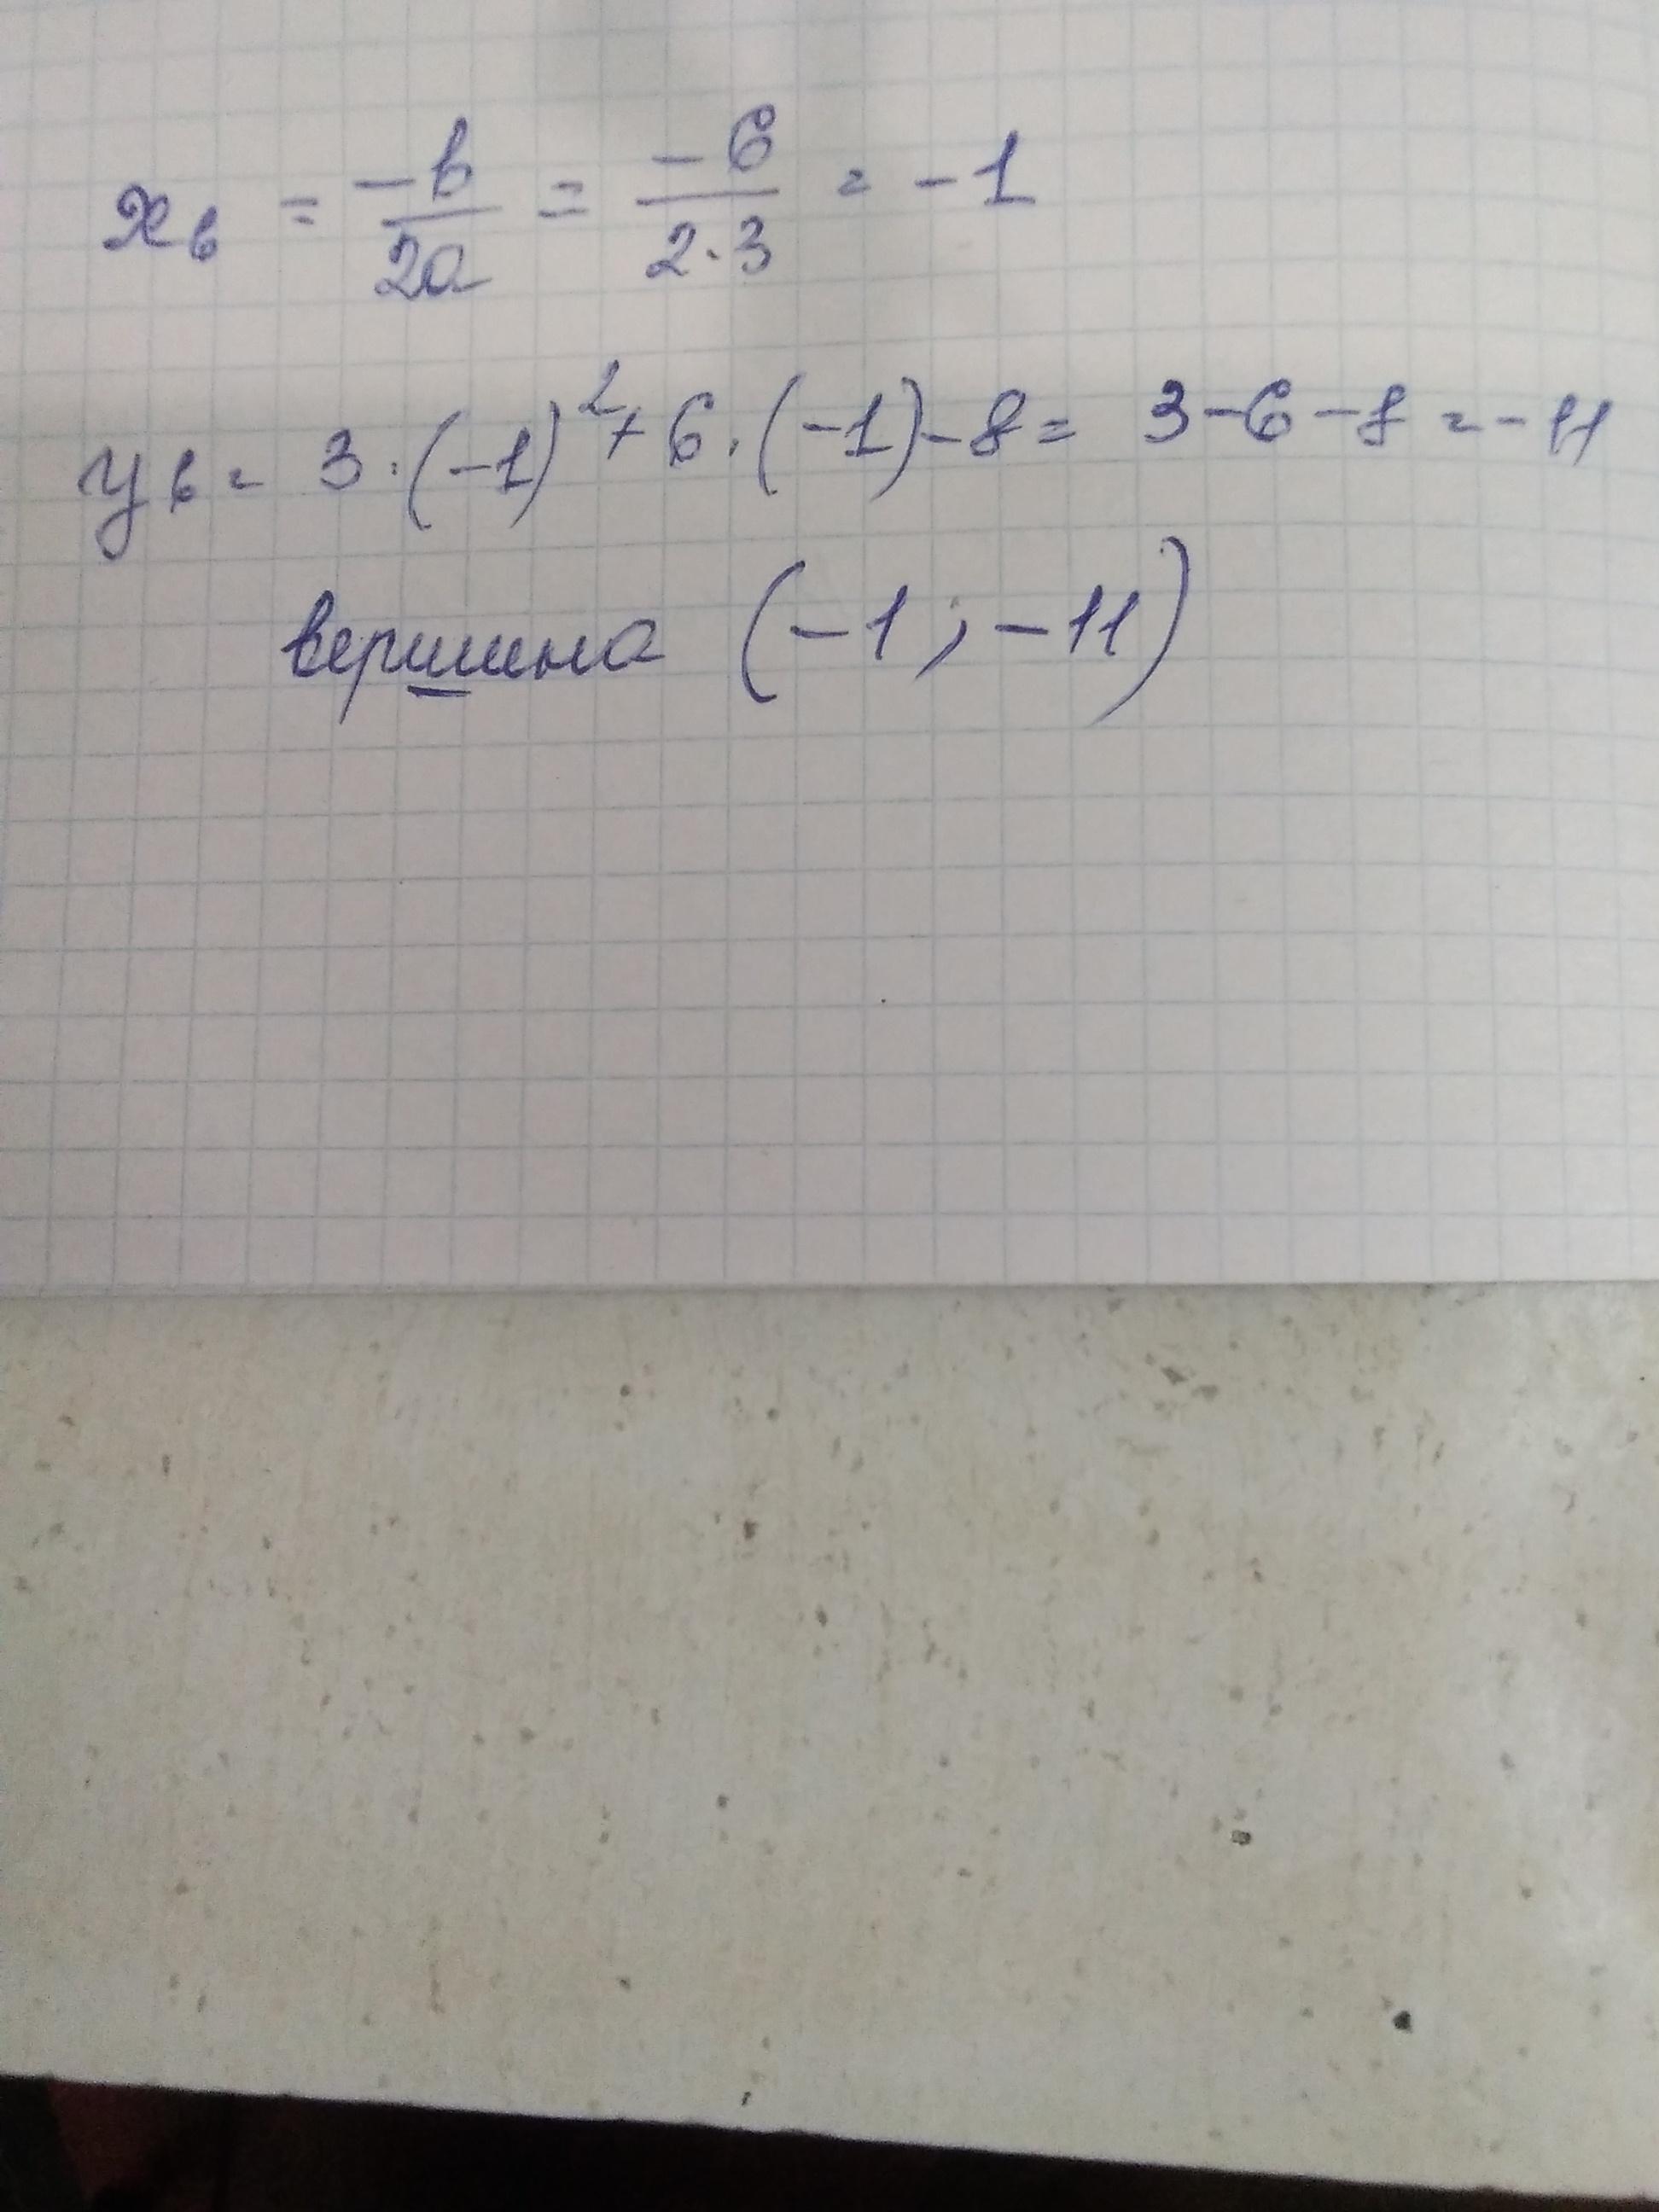 xв = -b/2a = -6/2·3 = -1
yв = 3·(-1)²+6·(-1)-8= 3-6-8=-11
вершина (-1;-11)